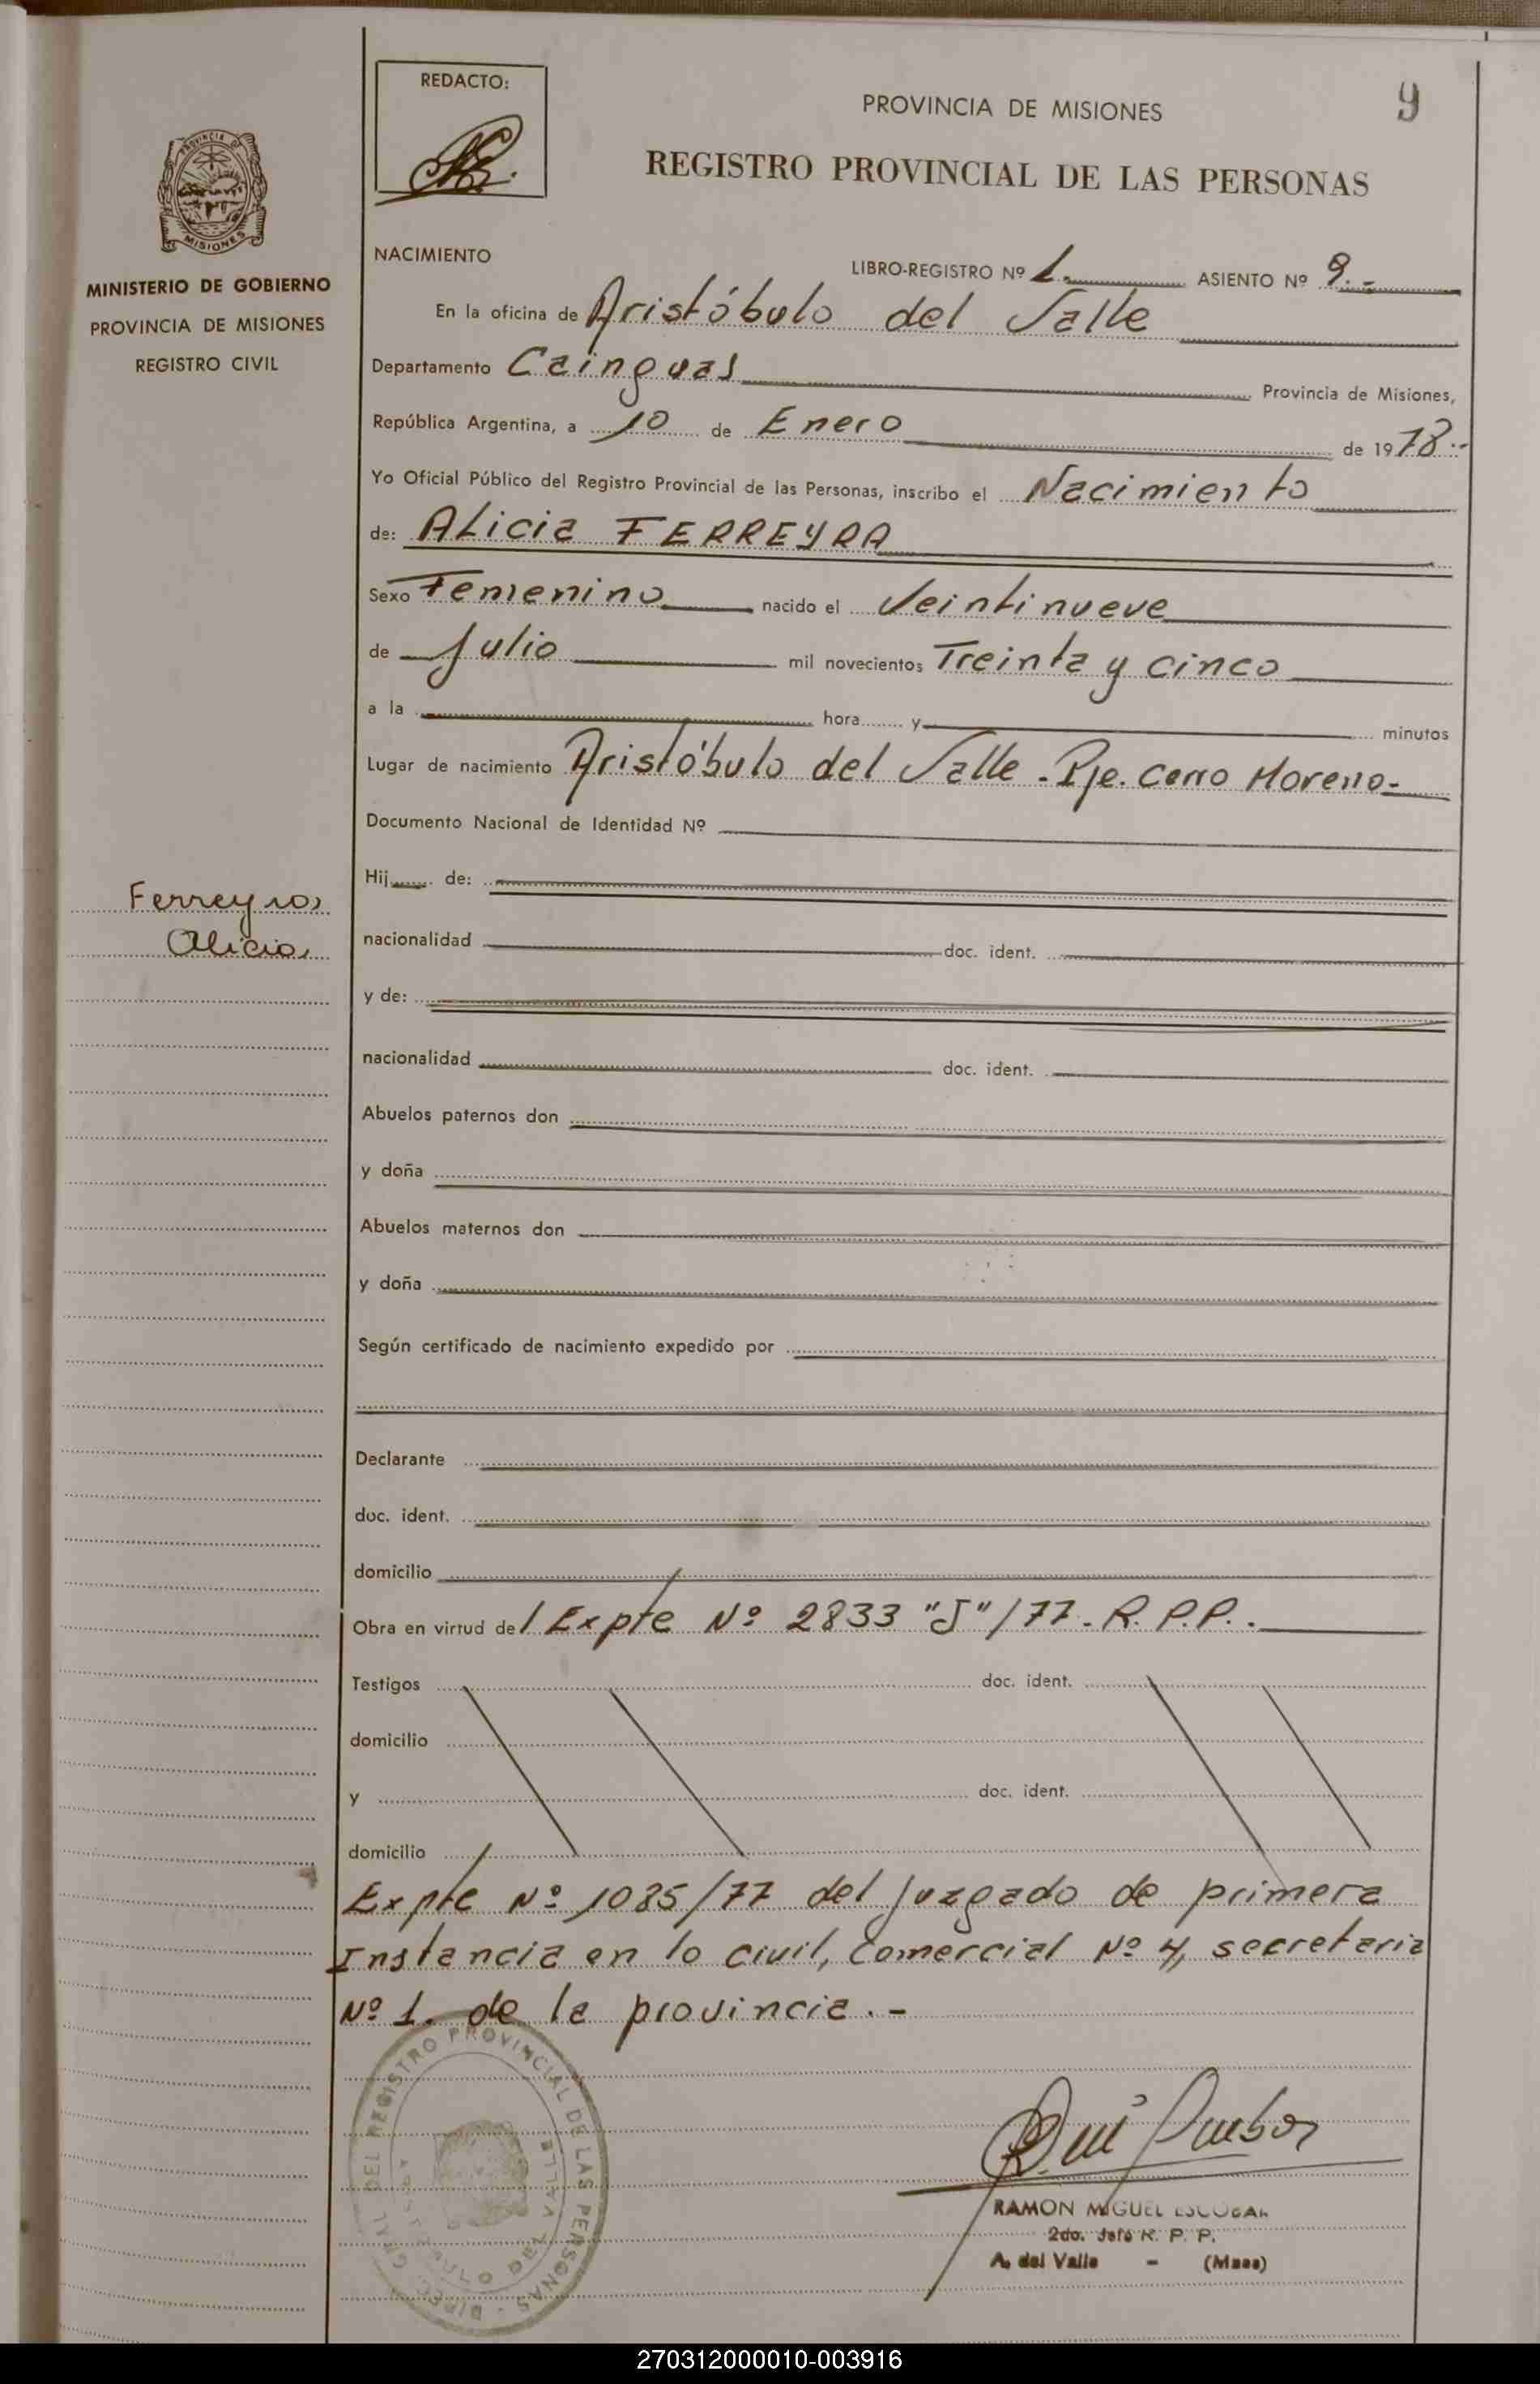 REDACTO:
9
PROVINCIA DE MISIONES
REGISTRO PROVINCIAL DE LAS PERSONAS
PROVINCIA DE
MISIONES
MINISTERIO DE GOBIERNO
PROVINCIA DE MISIONES
REGISTRO CIVIL
NACIMIENTO
LIBRO-REGISTRO Nº 1. ASIENTO Nº 9.-
En la oficina de Aristóbulo del Valle
Departamento Cainguas Provincia de Misiones,
República Argentina, a 10 de Enero de 1978.-
Yo Oficial Público del Registro Provincial de las Personas, inscribo el Nacimiento
de: Alicia FERREYRA
Sexo Femenino nacido el Veintinueve
de Julio mil novecientos Treinta y cinco
a la hora y minutos
Lugar de nacimiento Aristóbulo del Valle - Pje. Cerro Moreno-
Documento Nacional de Identidad Nº
Hij de:
Ferreyra,
Alicia,
nacionalidad doc. ident.
y de:
nacionalidad doc. ident.
Abuelos paternos don
y doña
Abuelos maternos don
y doña
Según certificado de nacimiento expedido por
Declarante
doc. ident.
domicilio
Obra en virtud de/ Expte Nº 2833 "J"/77- R.P.P..
Testigos doc. ident.
domicilio
y doc. ident.
domicilio
Expte Nº 1085/77 del juzgado de primera
Instancia en lo civil, Comercial Nº 4, secretaria
Nº 1. de la provincia.-
DIREC. GRAL. DEL REGISTRO PROVINCIAL DE LAS PERSONAS
ARISTOBULO DEL VALLE
RAMON MIGUEL ESCOBAR
2do. Jefe R. P. P.
A. del Valle - (Mnes)
270312000010-003916